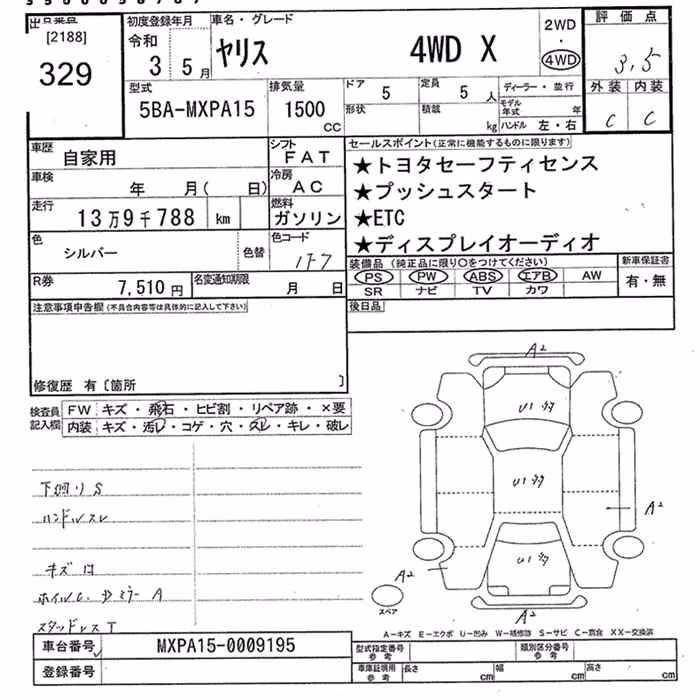 [2188]
329
初度登録年月
令和
3 5月
車名・グレード
ヤリス 4WD X
2WD
・
4WD
評価点
3.5
外装 内装
C C
型式
5BA-MXPA15
排気量
1500
CC
ドア 5
定員 5 人
形状
積載 kg
ディーラー・並行
モデル年式 年
ハンドル 左・右
車歴
自家用
シフト
FAT
車検
年 月( 日)
冷房
AC
走行
13万9千788 km
燃料
ガソリン
色
シルバー
色替
色コード
1F7
R券
7,510円
名変通知期限
月 日
セールスポイント(正常に機能するものに限ります)
★トヨタセーフティセンス
★プッシュスタート
★ETC
★ディスプレイオーディオ
装備品(純正品に限り○をつけてください)
PS PW ABS エアB AW
SR ナビ TV カワ
新車保証書
有・無
後日品
注意事項申告欄(不具合内容等は具体的に記入して下さい)
修復歴 有〔箇所 〕
検査員記入欄
FW キズ・飛石・ヒビ割・リペア跡・×要
内装 キズ・汚レ・コゲ・穴・スレ・キレ・破レ
下廻りS
ハンドルスレ
キズ
A
スタッドレスT
A2
U1
U1
A2
U1
A2
A2
スペア
A-キズ E-エクボ U-凹み W-補修跡 S-サビ C-腐食 XX-交換済
車台番号 MXPA15-0009195
登録番号
型式指定番号
参考
類別区分番号
参考
車庫証明用
参考
長さ cm 幅 cm 高さ cm